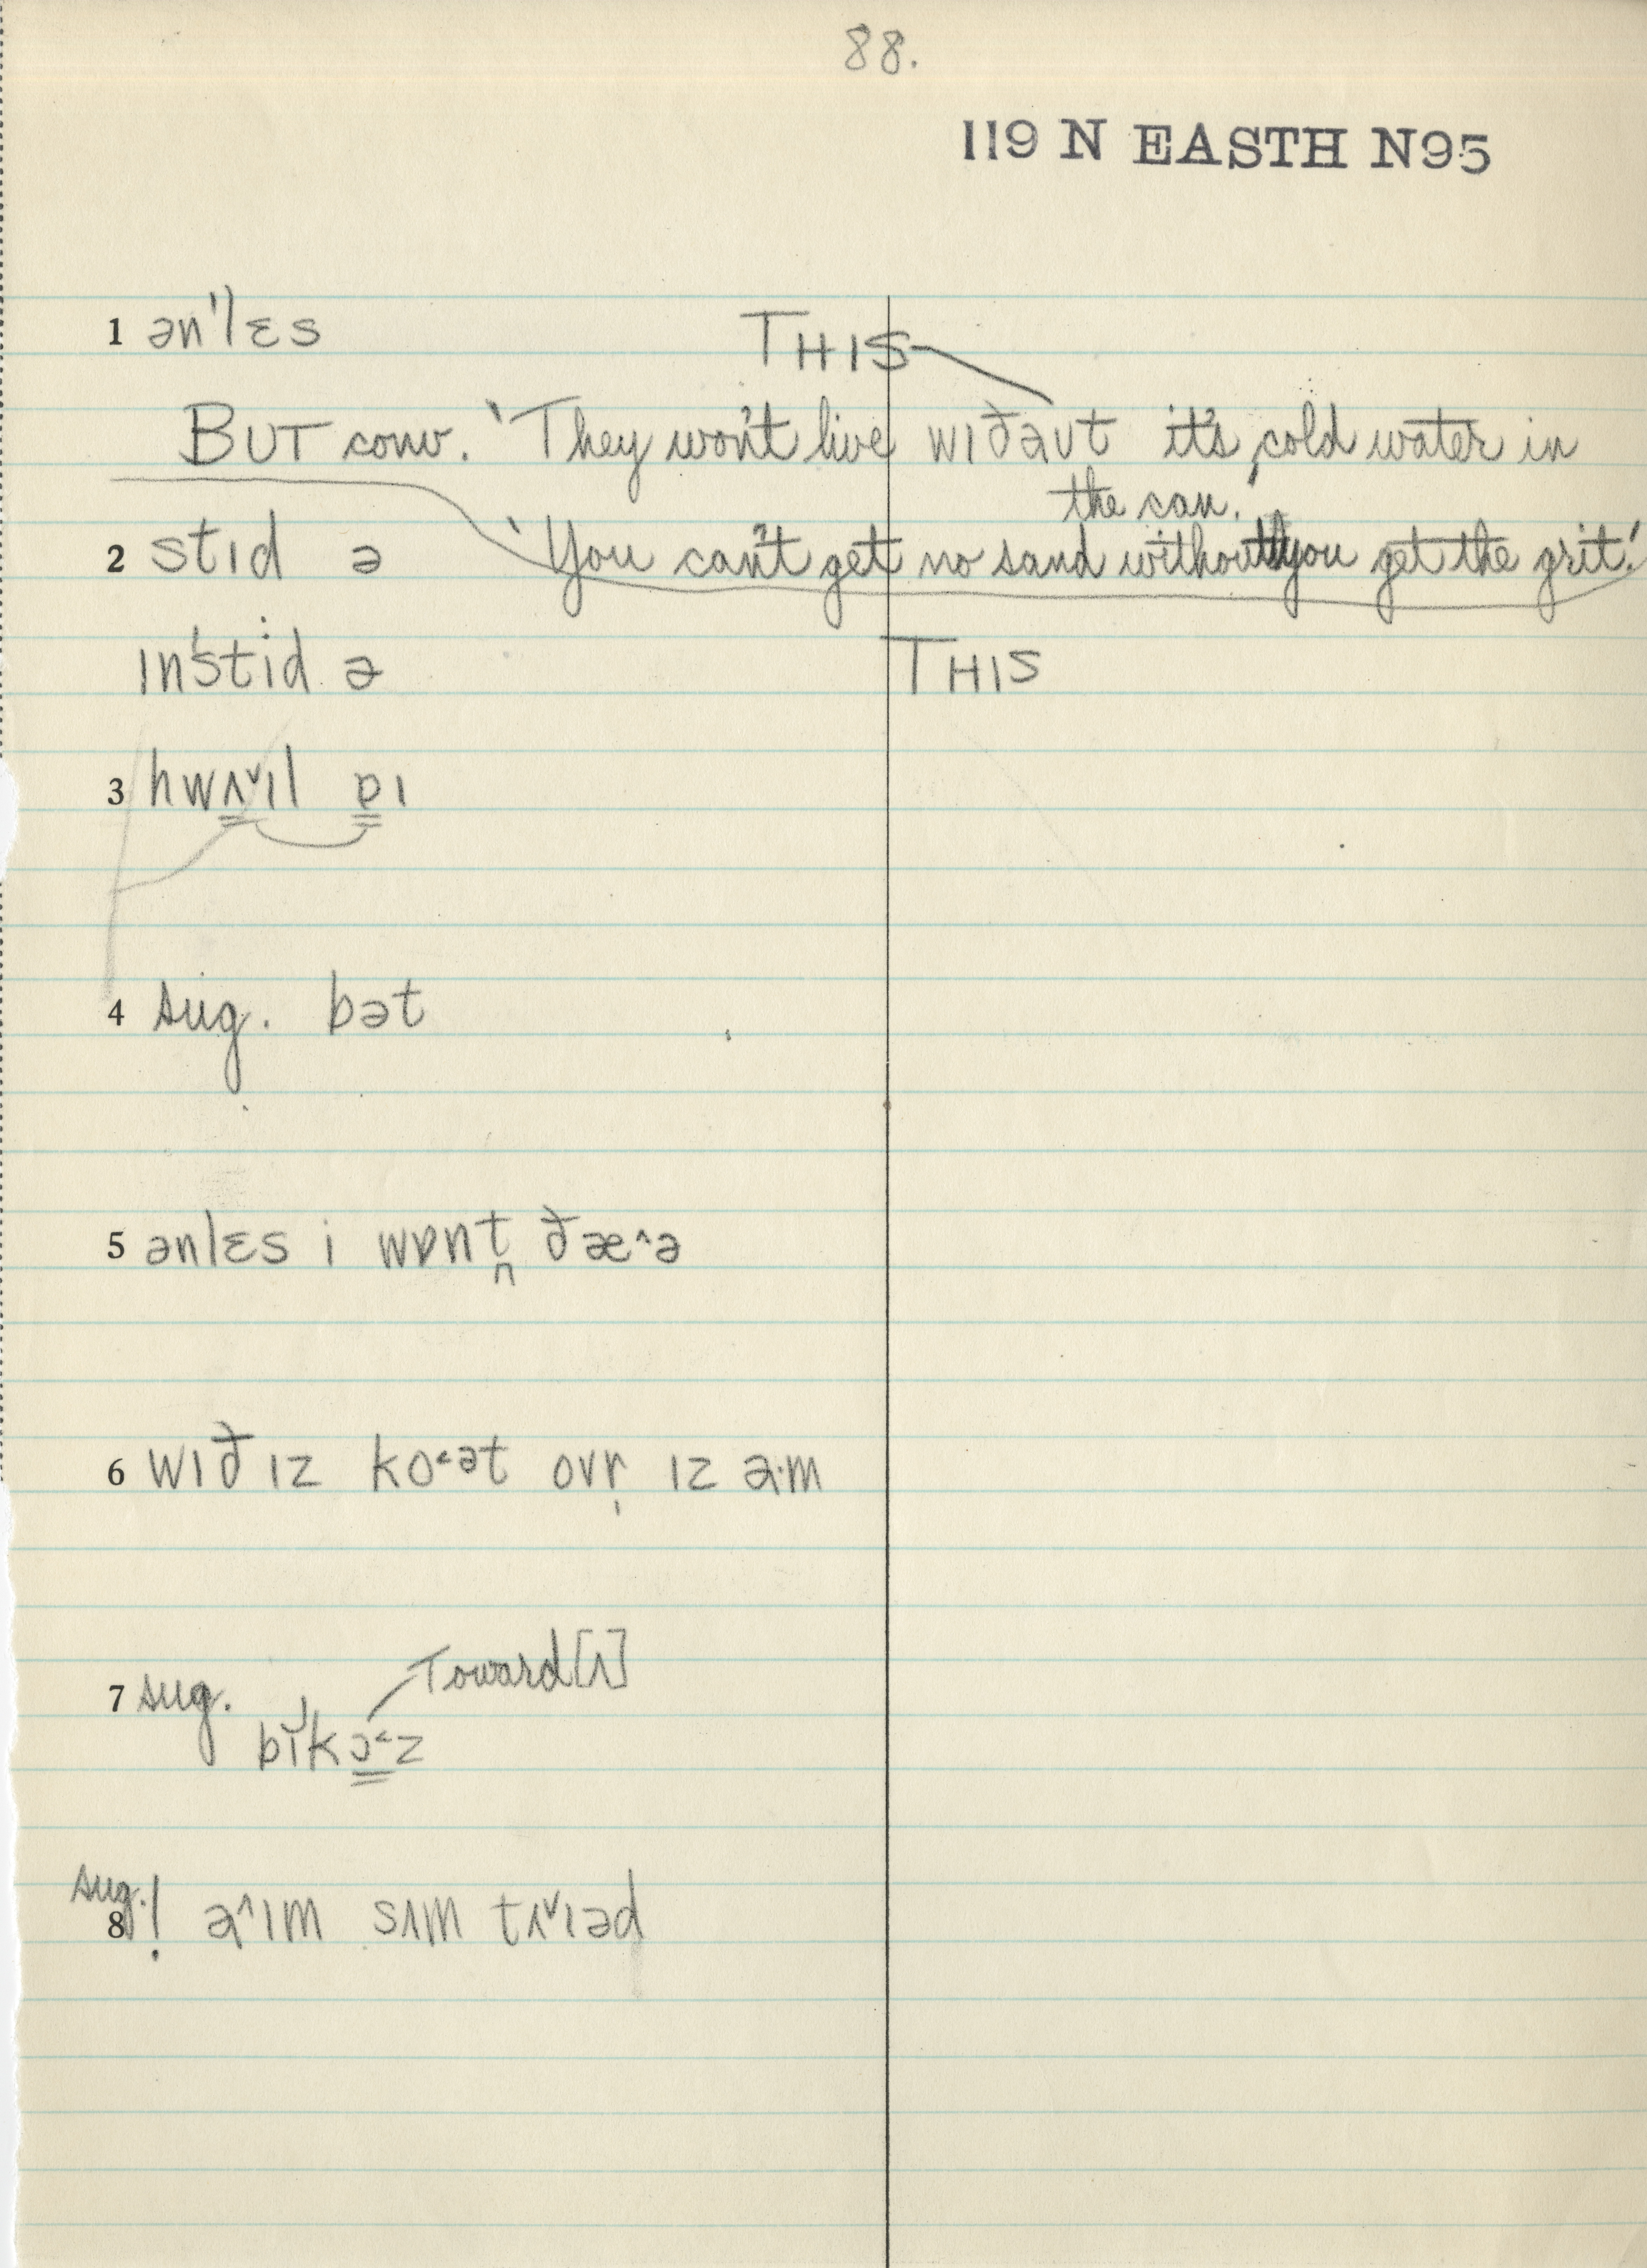 88.
119 N EASTH N95
1 ənˈlɛs THIS
BUT conv. 'They won't live wɪðəʊt it's cold water in
the can.'
2 stɪd ə 'You can't get no sand without you get the grit.'
ɪnˈstid ə THIS
3 hwʌ̳ˇɪl ɒ̳ɪ
4 sug. bət
5 ənlɛs i wɒnt̪ ðæ^ə
6 wɪð ɪz ko˂ət ovr̩ ɪz a·m
7 sug. Toward [ʌ]
bɪ̆kɔ̳˂z
sug.
8 ! a^ɪm sʌm tʌˇɪəd